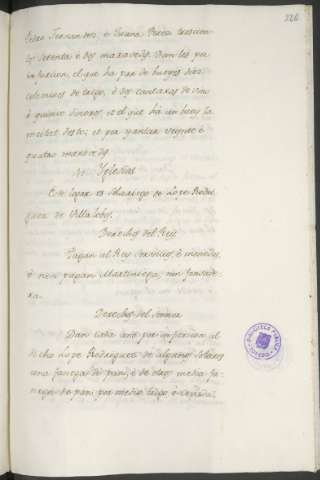 226
Pedro Fernandez, é Juana Perez trescien-
tos setenta é dos maravedis. Dan les por
infurcion, el que ha par de bueyes dies
celemines de trigo, é dos cantaras de vino
é quince dineros, et el que há un buey la
mitat desto, et por yantar veynte é
quatro maravedis.
Yglesias
Este logar es Solariego de Lope Rodri-
guez de Villalobos.
Derechos del Rey.
Pagan al Rey servicios, é monedas,
é non pagan Martiniega, nin fonsade-
ra.
Derechos del Sennor
Dan cada año por infurcion al
dicho Lope Rodriguez de algunos Solares
una fanega de pan, é de otros media fa-
nega de pan, por medio trigo é cevada.